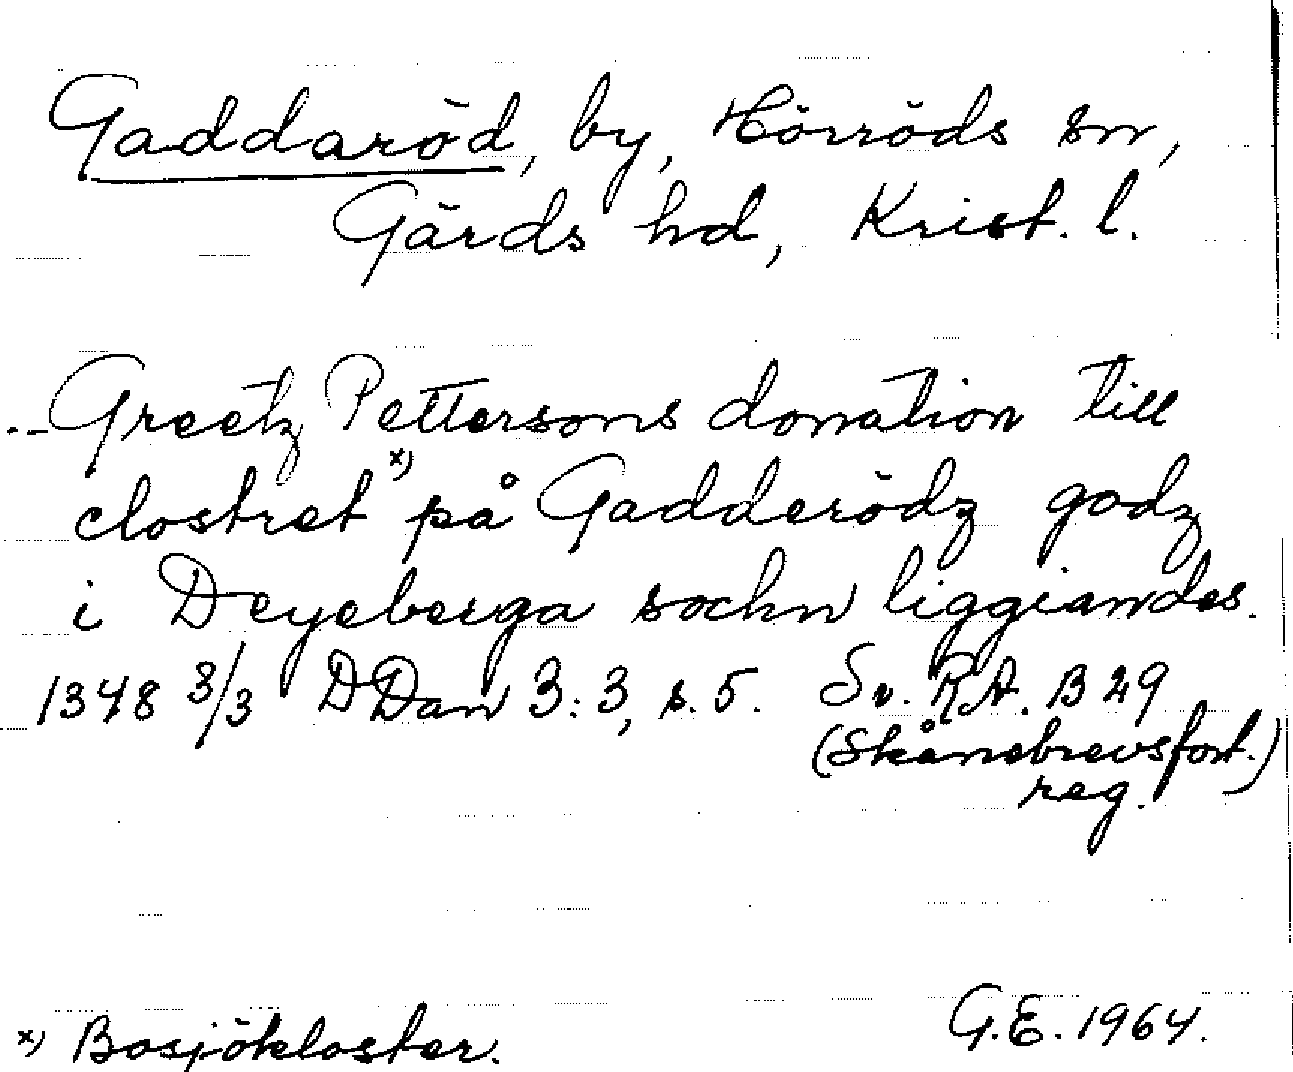 Gaddaröd, by, Hörröds sn,
Gärds hd, Krist. l.
.-- Greetz Pettersons donation till
clostret x) på Gadderödz godz
i Deyeberga sochn liggiandes.
1348 3/3 DDan 3:3, s. 5. Sv. RA. B 29
(Skånebrevsfört.)
reg.
x) Bosjökloster.
G.E. 1964.